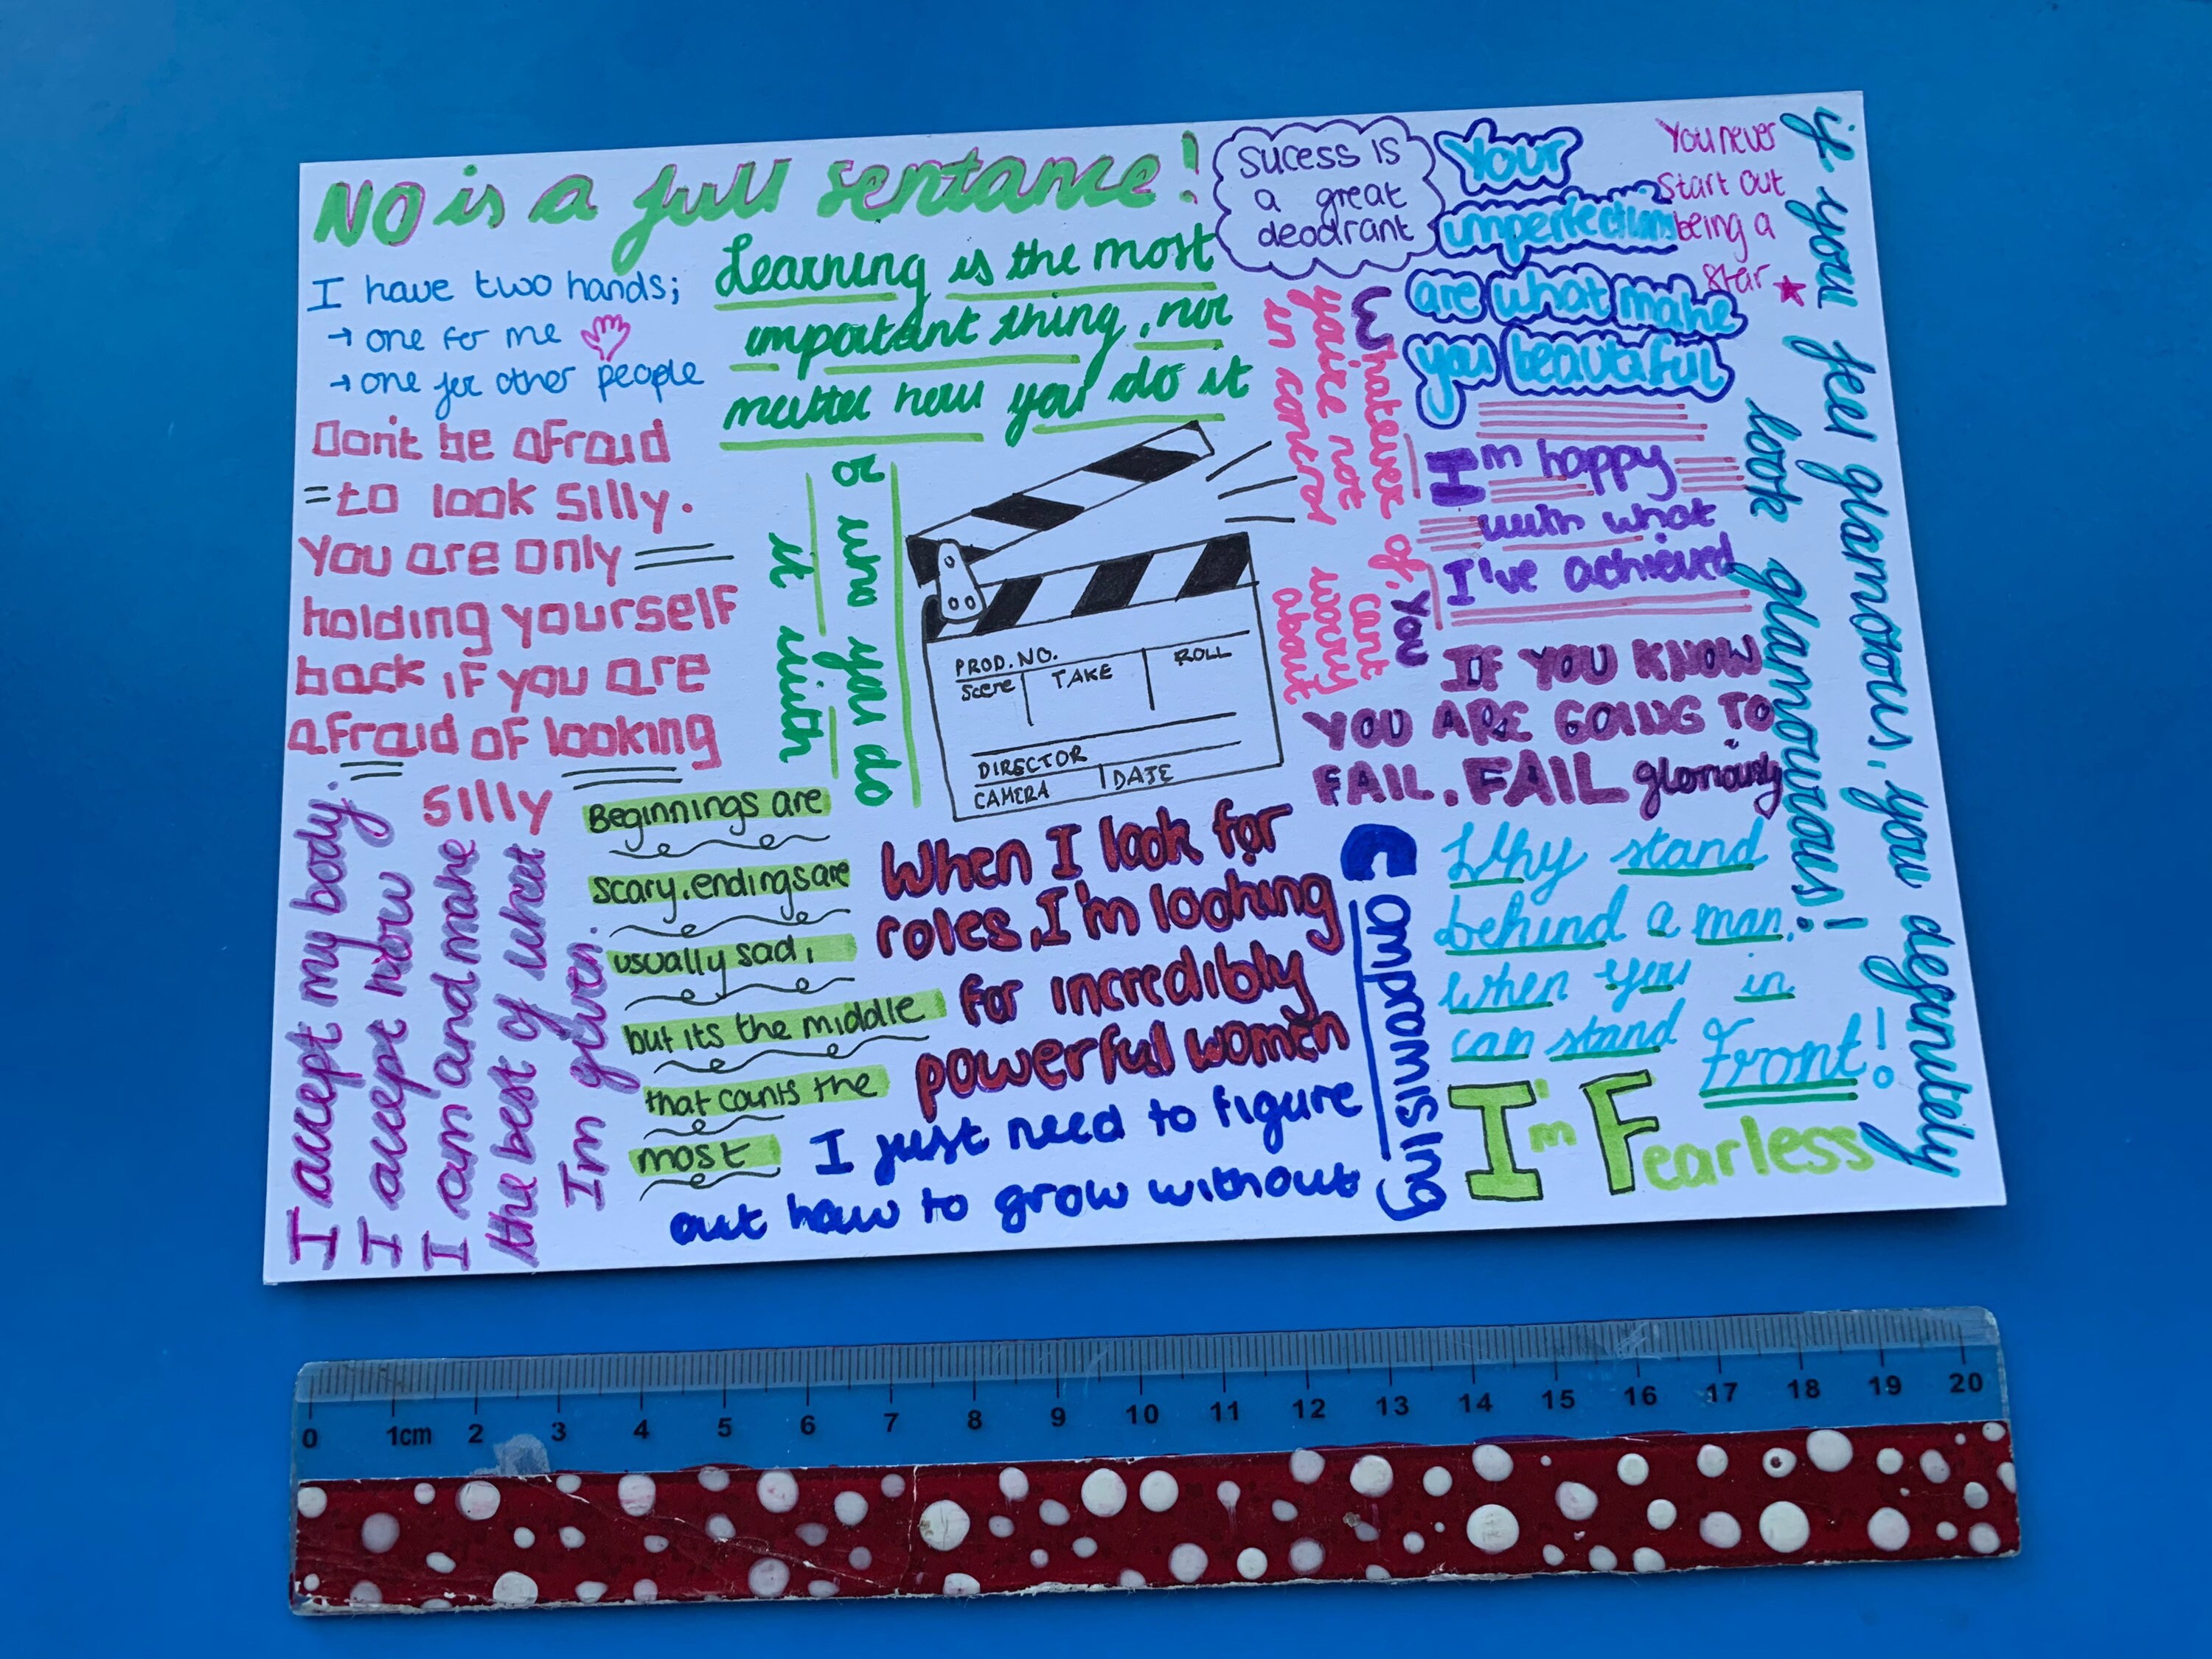 NO is a full sentance!
I have two hands;
→ one for me
→ one for other people
Don't be afraid
to look silly.
You are only
holding yourself
back if you are
afraid of looking
silly
I accept my body.
I accept how
I am and make
the best of what
Im given.
Learning is the most
important thing, no
matter how you do it
or who you do
it with
sucess is
a great
deodrant
Your
imperfections
are what make
you beautiful
You never
start out
being a
star
if you feel glamorous, you definitely
look glamourous!
Whatever
you're not
in control
of. You
cant
worry
about
I'm happy
with what
I've achieved
PROD. NO.
Scene TAKE ROLL
DIRECTOR
CAMERA DATE
IF YOU KNOW
YOU ARE GOING TO
FAIL. FAIL gloriously
Beginnings are
scary, endings are
usually sad,
but its the middle
that counts the
most
When I look for
roles, I'm looking
for incredibly
powerful women
I just need to figure
out how to grow without
Compromising
Why stand
behind a man,
when you in
can stand
Front!
I'm Fearless
0 1cm 2 3 4 5 6 7 8 9 10 11 12 13 14 15 16 17 18 19 20